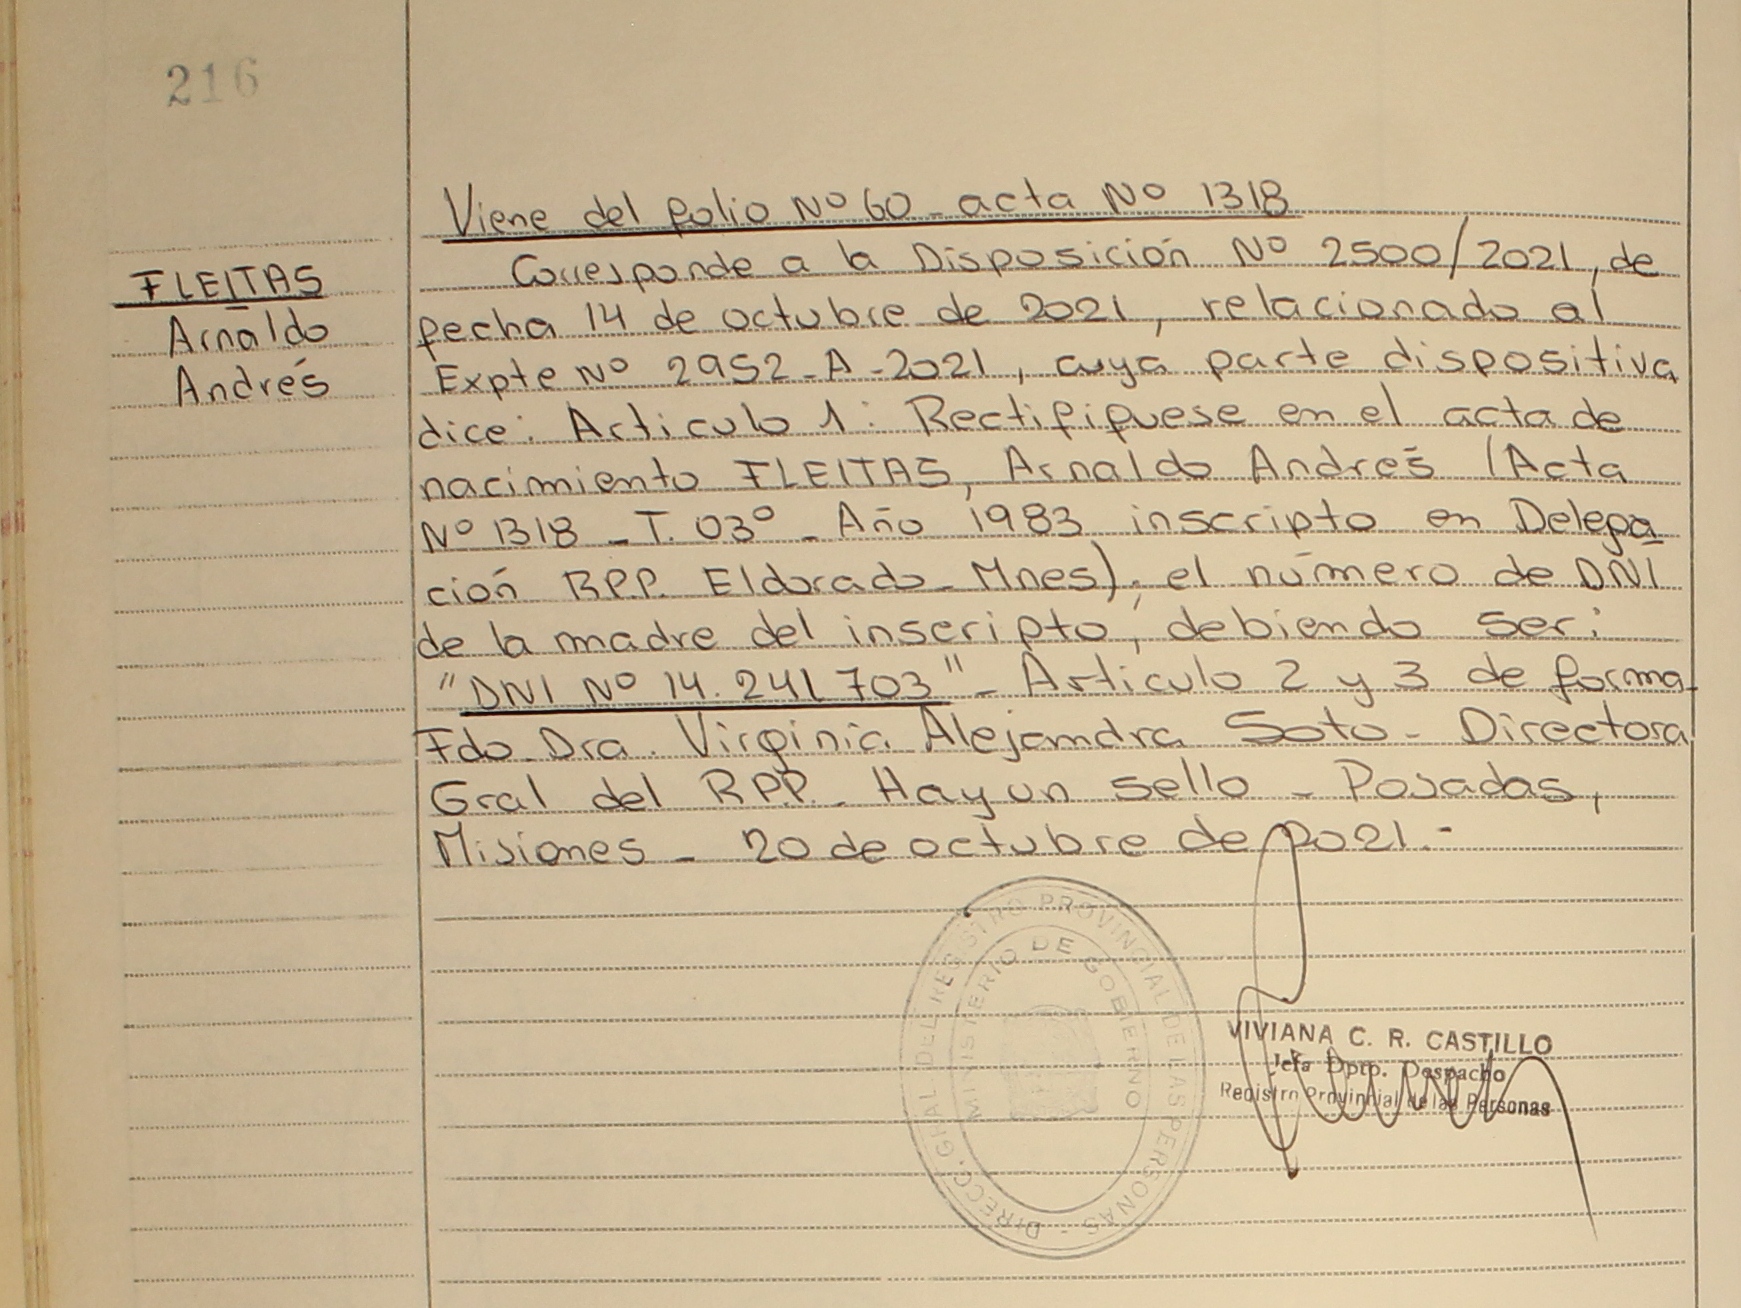 216
Viene del folio Nº 60 - acta Nº 1318
FLEITAS
Arnaldo
Andrés
Corresponde a la Disposición Nº 2500/2021, de
fecha 14 de octubre de 2021, relacionado al
Expte Nº 2952-A-2021, cuya parte dispositiva
dice: Articulo 1: Rectifiquese en el acta de
nacimiento FLEITAS, Arnaldo Andrés (Acta
Nº 1318 - T. 03º - Año 1983 inscripto en Delega
ción R.P.P. Eldorado - Mnes), el número de DNI
de la madre del inscripto, debiendo ser:
"DNI Nº 14.241.703" - Artículo 2 y 3 de forma-
Fdo. Dra. Virginia Alejandra Soto - Directora
Gral del R.P.P. - Hay un sello - Posadas,
Misiones - 20 de octubre de 2021.-
DIRECC. GRAL DEL REGISTRO PROVINCIAL DE LAS PERSONAS -
MINISTERIO DE GOBIERNO
VIVIANA C. R. CASTILLO
Jefa Dpto. Despacho
Registro Provincial de las Personas